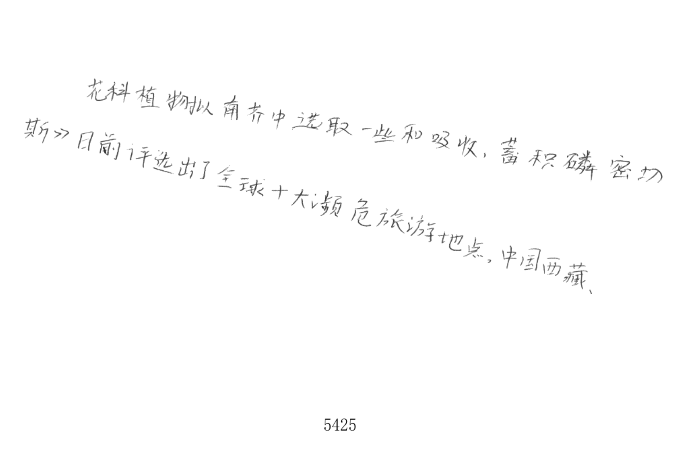 花科植物拟南芥中选取一些和吸收、蓄积磷密切
斯》日前评选出了全球十大濒危旅游地点,中国西藏、
5425